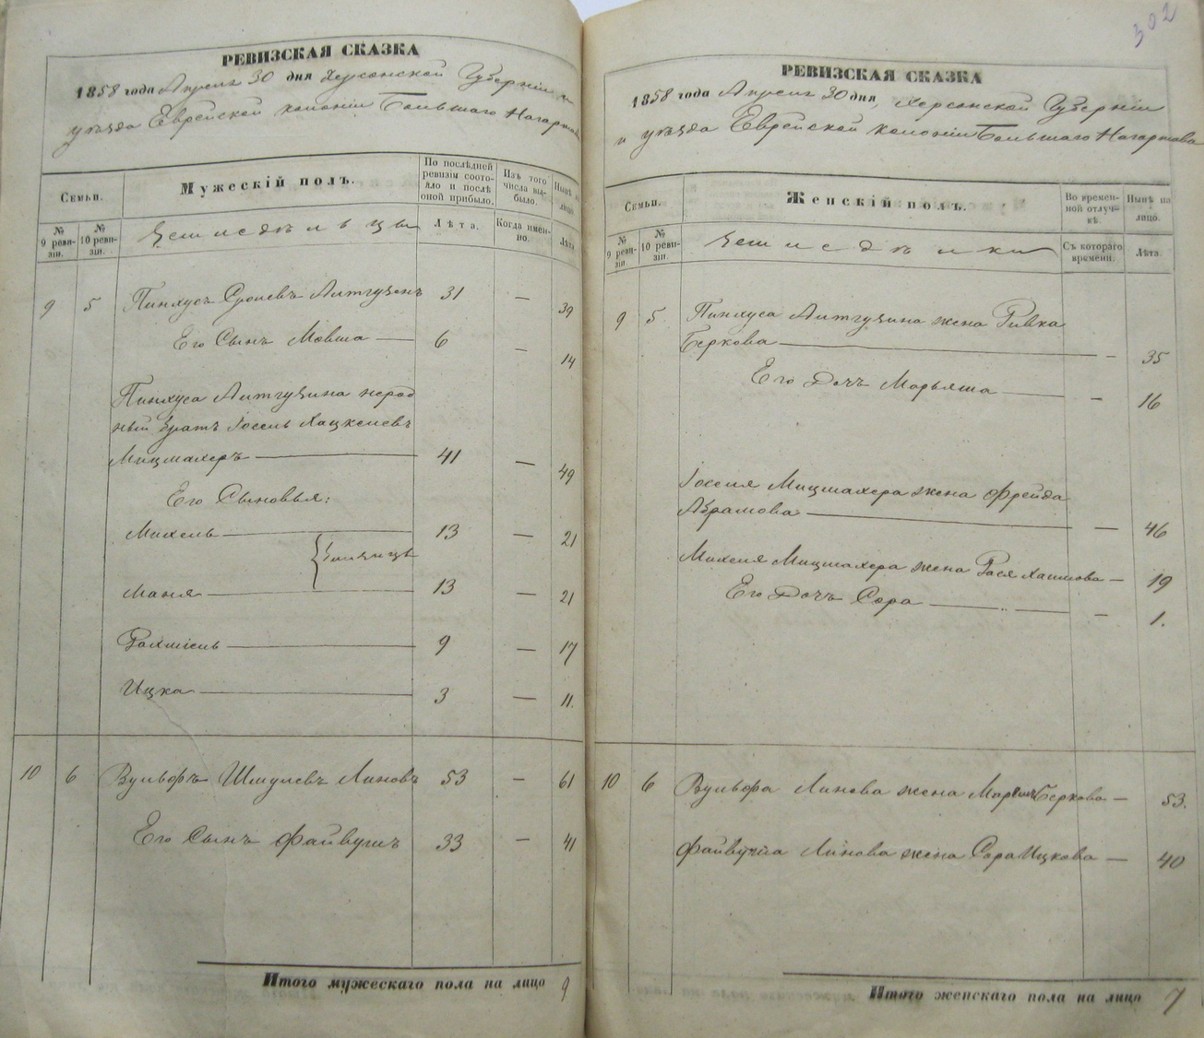 302
РЕВИЗСКАЯ СКАЗКА
1858 года Апреля 30 дня Херсонской Губерніи и
уѣзда Еврейской колоніи Большаго Нагартова
Семьи.
Мужескій полъ.
По последней ревизіи состояло и послѣ оной прибыло.
Изъ того числа выбыло.
Нынѣ на лицо.
№ 9 ревизіи.
№ 10 ревизіи.
Земледѣльцы
Лѣта.
Когда именно.
Лѣта
9 5 Пинхусъ Сролевъ Литгузенъ 31 — 39
Его Сынъ Мовша — 6 — 14
Пинхуса Литгузина нерод
ный братъ Іосель Хацкелевъ
Мицмахеръ — 41 — 49
Его Сыновья:
Михель — 13 — 21
близнецы
Маня — 13 — 21
Рахмієль — 9 — 17
Ицка — 3 — 11.
10 6 Вульфъ Шмулевъ Линовъ 53 — 61
Его Сынъ Файвушъ 33 — 41
Итого мужескаго пола на лицо 9
РЕВИЗСКАЯ СКАЗКА
1858 года Апреля 30 дня, Херсонской Губерніи
и уѣзда Еврейской колоніи Большаго Нагартова
Семьи.
Женскій полъ.
Во временной отлучкѣ.
Нынѣ на лицо.
№ 9 ревизіи.
№ 10 ревизіи.
Земледѣлки
Съ котораго времени.
Лѣта.
9 5 Пинхуса Литгузина жена Ривка
Беркова — — 35
Его Дочь Марьяша — — 16
Іоселя Мицмахера жена Фрейда
Абрамова — — 46
Михеля Мицмахера жена Рася Хаимова — 19
Его Дочь Сора — — 1.
10 6 Вульфа Линова жена Беркова — 53.
Файвуша Линова жена Сора Ицкова — 40
Итого женскаго пола на лицо 7